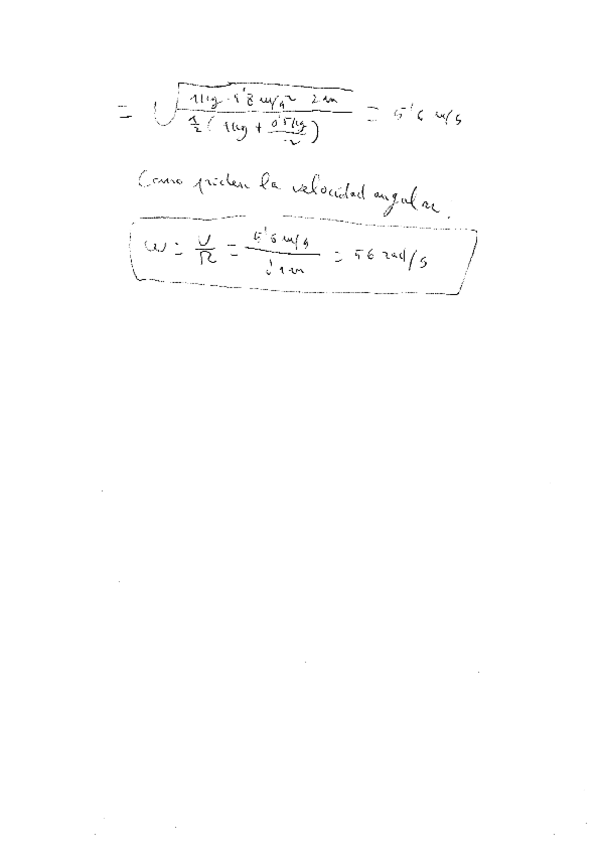 = √ 1kg · 9'8 m/s² 2m / ½ ( 1kg + 0'5kg / 2 ) = 5'6 m/s
Como piden la velocidad angular.
ω = v / R = 5'6 m/s / 0'1 m = 56 rad/s